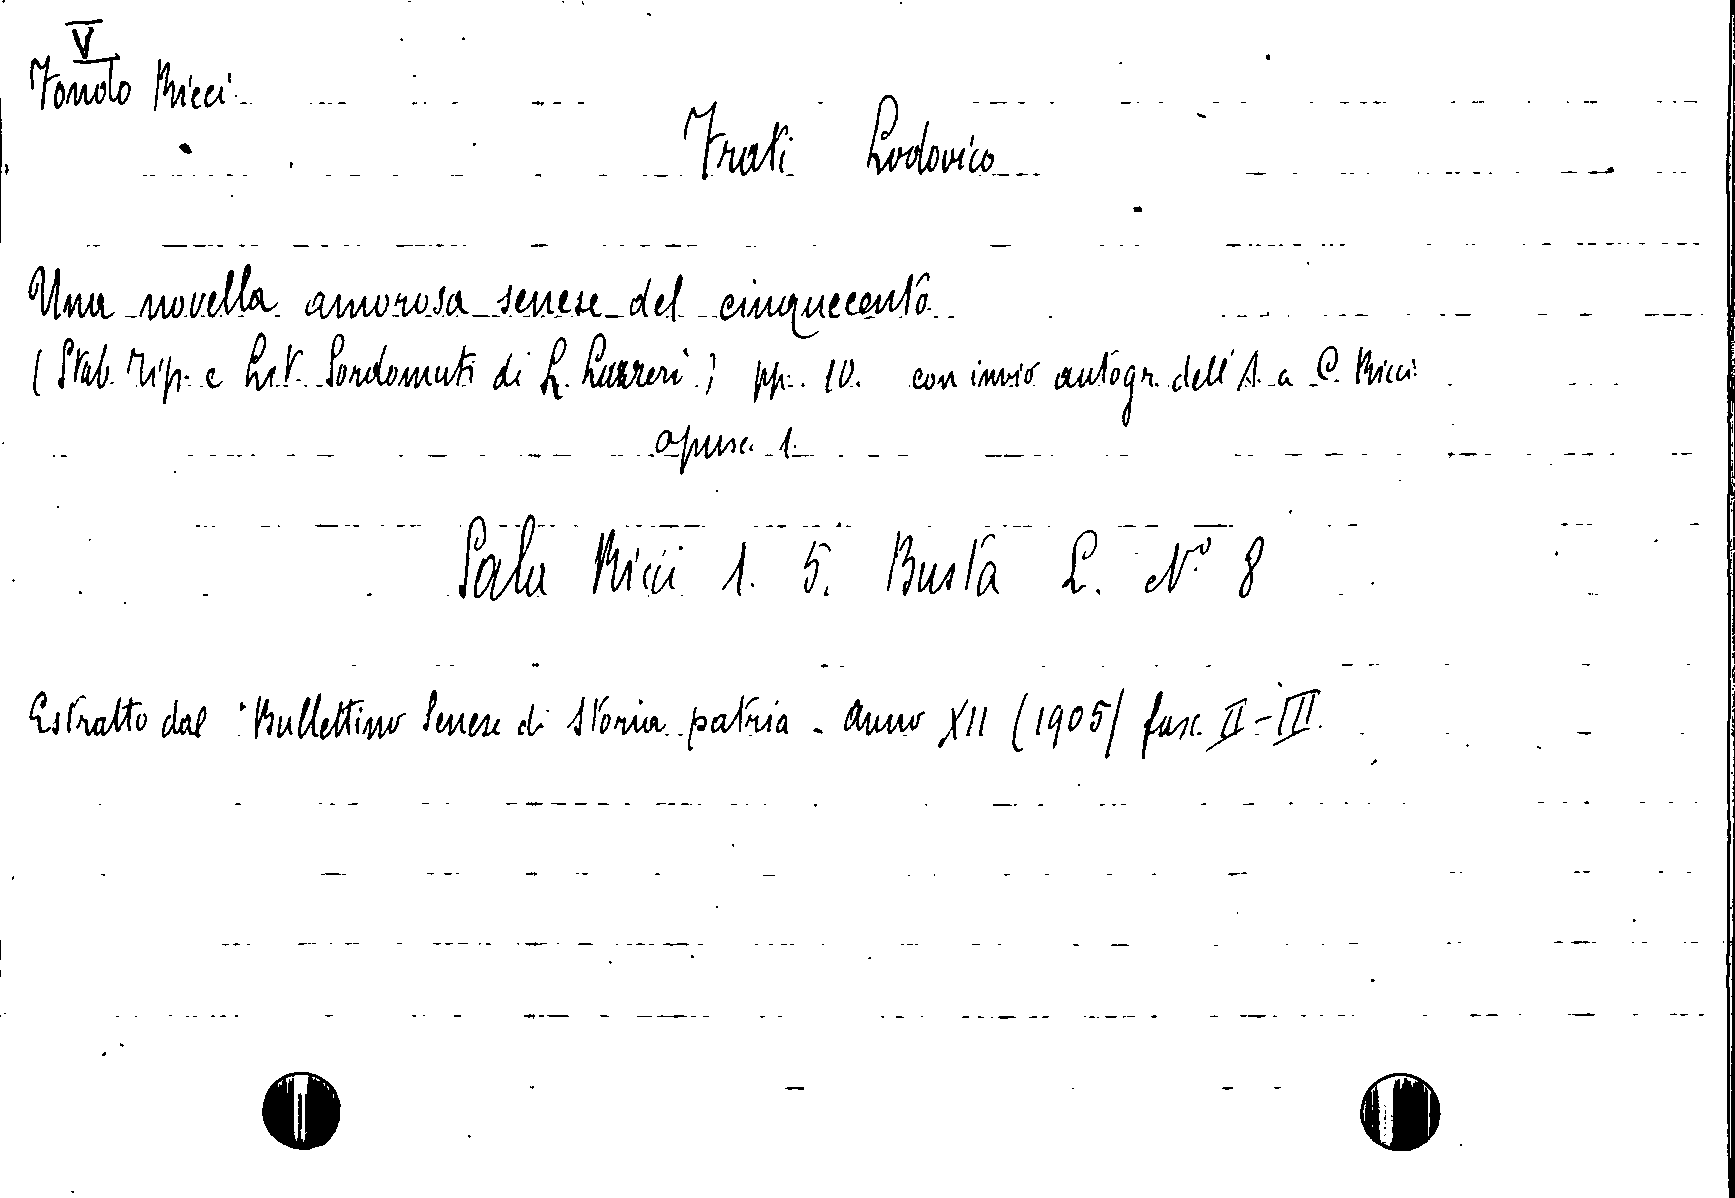 V
Fondo Ricci
Frati Lodovico
Una novella amorosa senese del cinquecento
(Stab. Tip. e Lit. Sordomuti di L. Lazzeri) pp. 10. con invio autogr. dell'A. a C. Ricci
opusc. 1.
Sala Ricci 1. 5. Busta L. N.° 8
Estratto dal "Bullettino Senese di Storia patria - anno XII (1905) fasc. II-III.